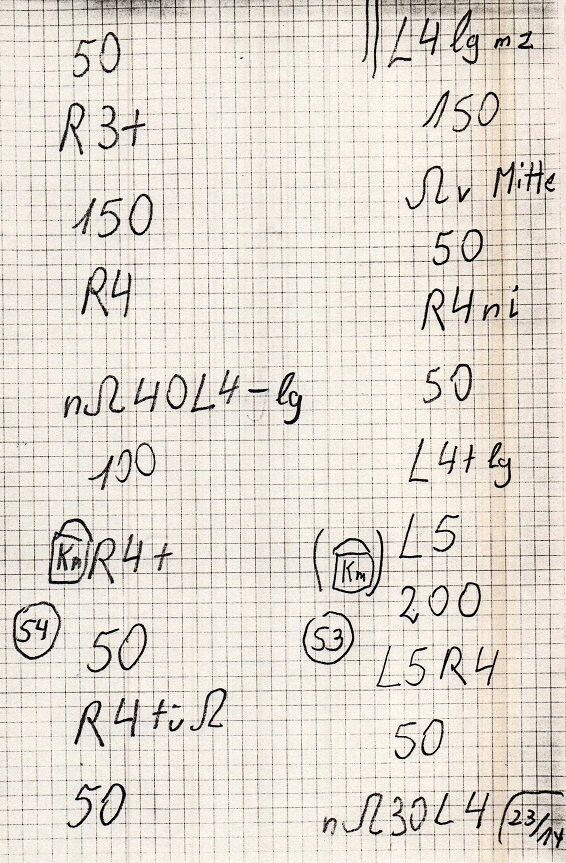 50
R3+
150
R4
nΩ40L4-lg
100
Km R4+
54
50
R4+üΩ
50
L4lg mz
150
Ω v Mitte
50
R4ni
50
L4+lg
(Km) L5
200
53
L5R4
50
nΩ30L4 23/14